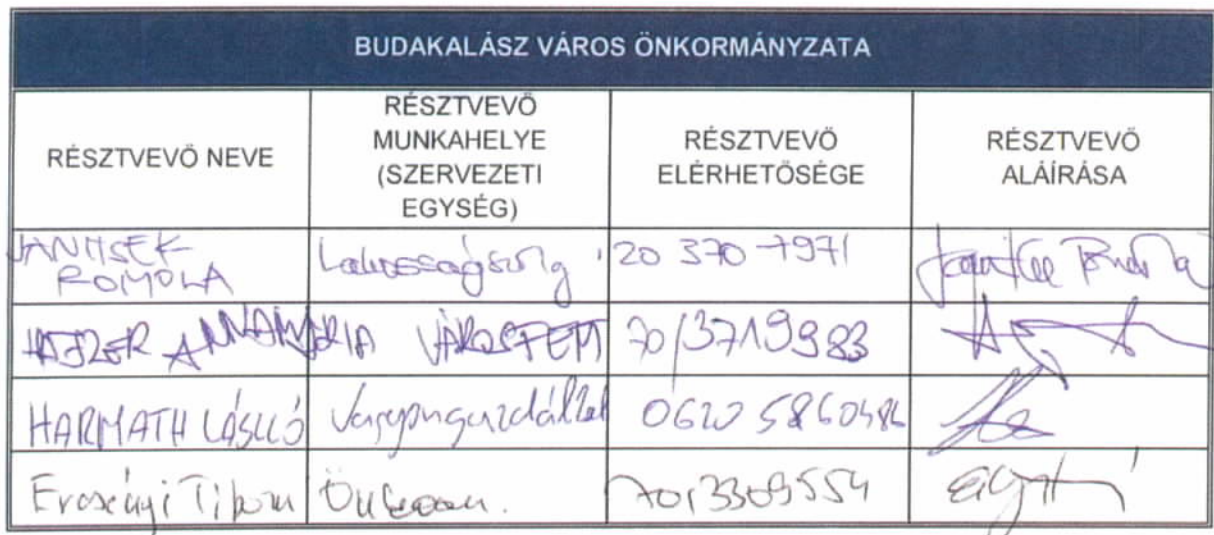 BUDAKALÁSZ VÁROS ÖNKORMÁNYZATA
RÉSZTVEVŐ NEVE
RÉSZTVEVŐ
MUNKAHELYE
(SZERVEZETI
EGYSÉG)
RÉSZTVEVŐ
ELÉRHETŐSÉGE
RÉSZTVEVŐ
ALÁÍRÁSA
JANITSEK
ROMOLA
Lakosságszolg
20 370 7971
ANNAMÁRIA
70/3719983
HARMATH LÁSZLÓ
Vagyongazdálkod
0620 5860486
Tibor
70/3309554